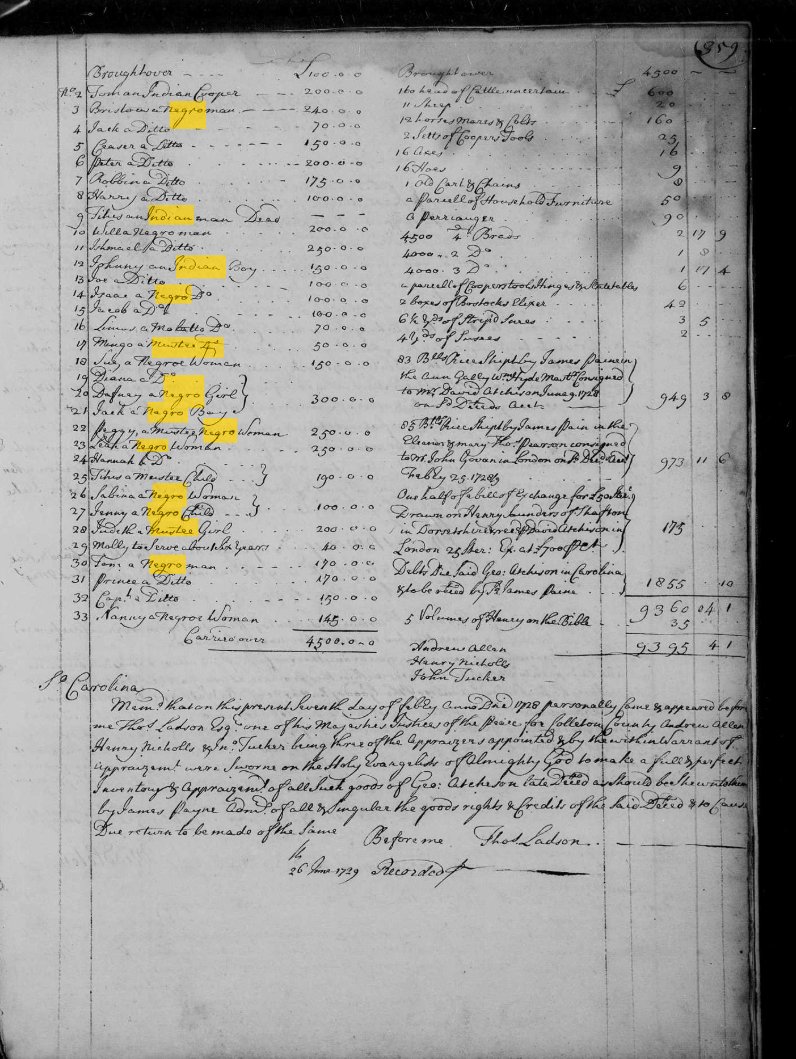 359
Broughtover - - - £100..0..0
No. 2 Toman Indian Cooper - - - 200..0..0
3 Bristow a Negro man - - - 240..0..0
4 Jack a Ditto 70..0..0
5 Ceaser a Ditto 150..0..0
6 Peter a Ditto 200..0..0
7 Robbin a Ditto 175..0..0
8 Harry a Ditto 100..0..0
9 Titus an Indian man Dead - - -
10 Will a Negro man 200..0..0
11 Ishmael a Ditto 250..0..0
12 Johnny an Indian Boy 150..0..0
13 Joe a Ditto 100..0..0
14 Isaac a Negro Do 100..0..0
15 Jacob a Do 100..0..0
16 a Molatto Do 70..0..0
17 Mingo a Mustee Do 50..0..0
18 Suey a Negroe Woman 150..0..0
19 Diana a Do
20 Dafney a Negro Girl } 300..0..0
21 Jack a Negro Boy
22 Peggy, a Mustee Negro Woman 250..0..0
23 Leah a Negro Woman 250..0..0
24 Hannah a Do
25 Titus a Mustee Child } 190..0..0
26 Sabina a Negro Woman
27 Jenny a Negro Child } 100..0..0
28 Judeth a Mustee Girl 200..0..0
29 Molly to Serve about Six Years 40..0..0
30 Tom a Negro man 170..0..0
31 Prince a Ditto 170..0..0
32 Capt. a Ditto 150..0..0
33 Nanny a Negroe Woman 145..0..0
Carried over 4500..0..0
Broughtover 4500 - -
110 head of Cattle uncertain £ 600
11 Sheep 20
12 horses Mares & Colts 160
2 Setts of Coopers Tools 25
16 Axes 16
16 Hoes 9
1 Old Cart & Chains 8
a Parcell of Houshold Furniture 50
a Perriauger 90
4500 4d Brads 2 17 9
4000.. 2 Do 1 8
4000. 3 Do 1 17 4
a parcell of Coopers tools Hinges & 6
2 boxes of Bostocks Elixer 42
6 ½ yds of Strip'd 3 5
4 yds of 2
83 Blls Rice Shipt by James Paine in
the Ann Gally Wm. Hyde Mastr. Consigned
to Mr. David Atcheson June 9. 1728
on sd. Deceds Acct. 949 3 8
85 Blls Rice Shipt by James Pain in the
Eleanor & mary Thos. Pearson consigned
to Mr. John Govan in London on sd. Deced Acct
Febly 25 1728/9 973 11 6
One half of a bill of Exchange for £50 Sterg
Drawn on Henry Saunders of Shafton
in Dorsetshire & David Atcheson in
London 25 Ster: Ex. at £700 P Ct. 175
Debts Due Said Geo: Atcheson in Carolina
& to be by sd. James Paine 1855 .. 10
9360 04 1
5 Volumes of Henry on the Bible 35
9395 4 1
Andrew Allen
Henry Nicholls
John Tucker
So Carolina
Memd. that on this present Seventh Day of Febly Anno Dni 1728 personally Came & appeared before
me Thos. Ladson Esqr. one of his Majesties Justices of the Peace for Colleton County Andrew Allen
Henry Nicholls & Jno. Tucker being three of the Appraizers appointed & by the within Warrant of
appraizemt. were Sworne on the Holy Evangelists of Almighty God to make a full & perfect
Inventory & Appraizemt. of all Such goods of Geo: Atcheson late Deced as Should be Shewn to them
by James Payne Admr. of all & Singular the goods rights & Credits of the Said Deced & to Cause
Due return to be made of the Same Before me Thos. Ladson..
26 June 1729 Recorded